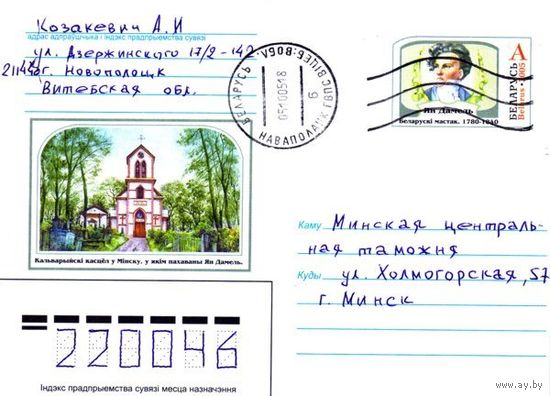 Козакевич А.И
адрас адпраўшчыка і індэкс прадпрыемства сувязі
ул. Дзержинского 17/2-142
г. Новополоцк
Витебская обл.
БЕЛАРУСЬ
НАВАПОЛАЦК
А
БЕЛАРУСЬ
Belarus • 2005
Ян Дамель
Беларускі мастак. 1780-1840
Кальварыйскі касцёл у Мінску, у якім пахаваны Ян Дамель.
Каму Минская централь-
ная таможня
Куды ул. Холмогорская, 57
г. Минск
220046
Індэкс прадпрыемства сувязі месца назначэння
www.ay.by